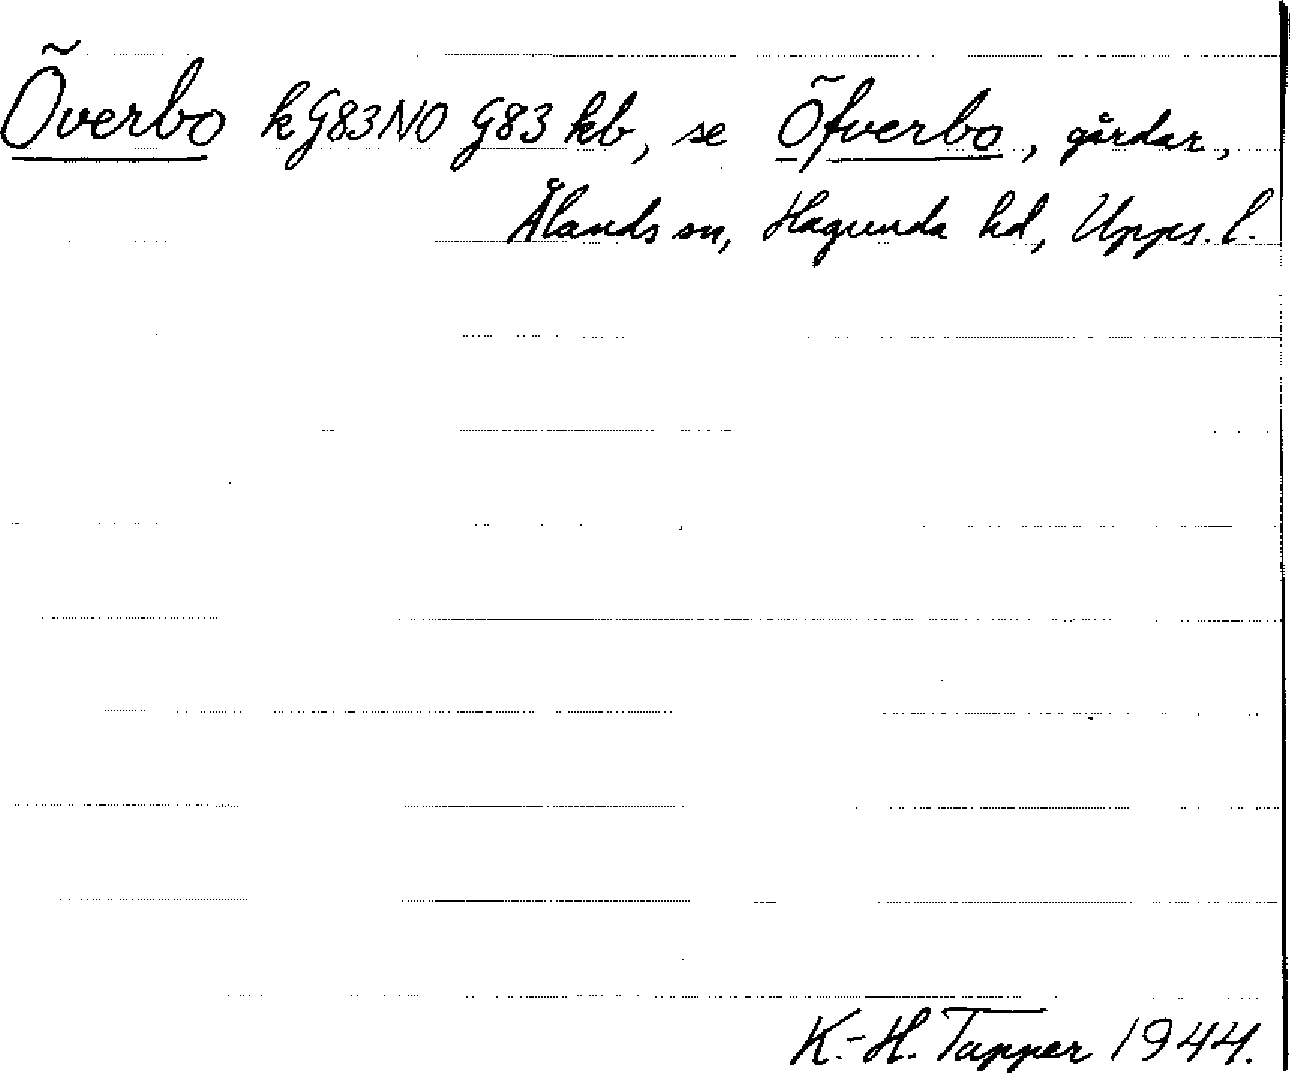 Överbo kG83NO G83 kb, se Öfverbo, gårdar,
Ålands sn, Hagunda hd, Upps. l.
K.-H. Tapper 1944.